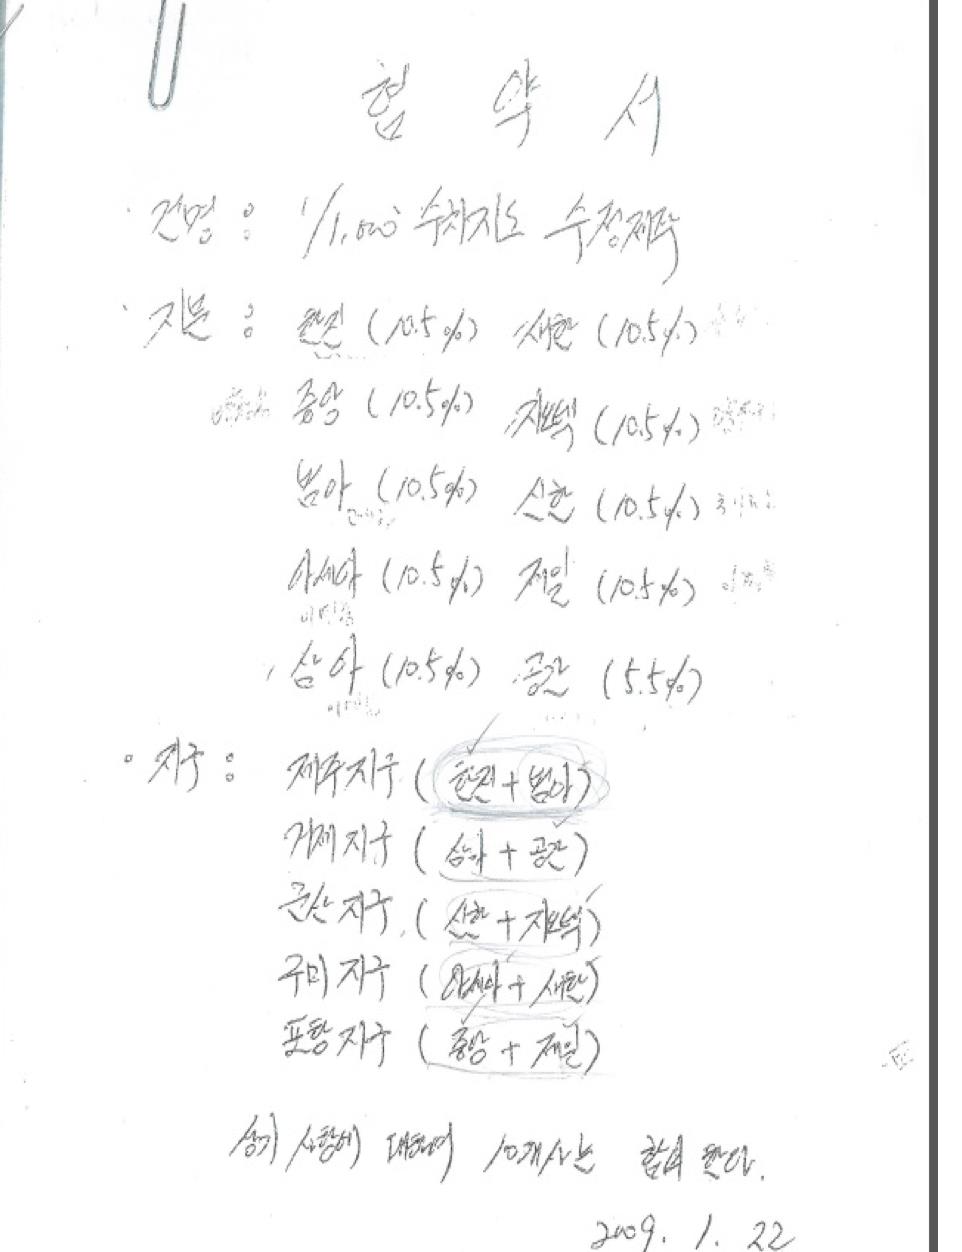 협 약 서
· 건명 : 1/1,000 수치지도 수정제작
· 지분 : 한진 (10.5%) 새한 (10.5%)
중앙 (10.5%) 지오텍 (10.5%)
범아 (10.5%) 신한 (10.5%)
아세아 (10.5%) 제일 (10.5%)
삼아 (10.5%) 공간 (5.5%)
∘ 지구 : 제주지구 ( 한진 + 범아 )
거제지구 ( 삼아 + 공간 )
군산지구 ( 신한 + 지오텍 )
구미지구 ( 아세아 + 새한 )
포항지구 ( 중앙 + 제일 )
상기 사항에 대하여 10개사는 합의 한다.
2009. 1. 22